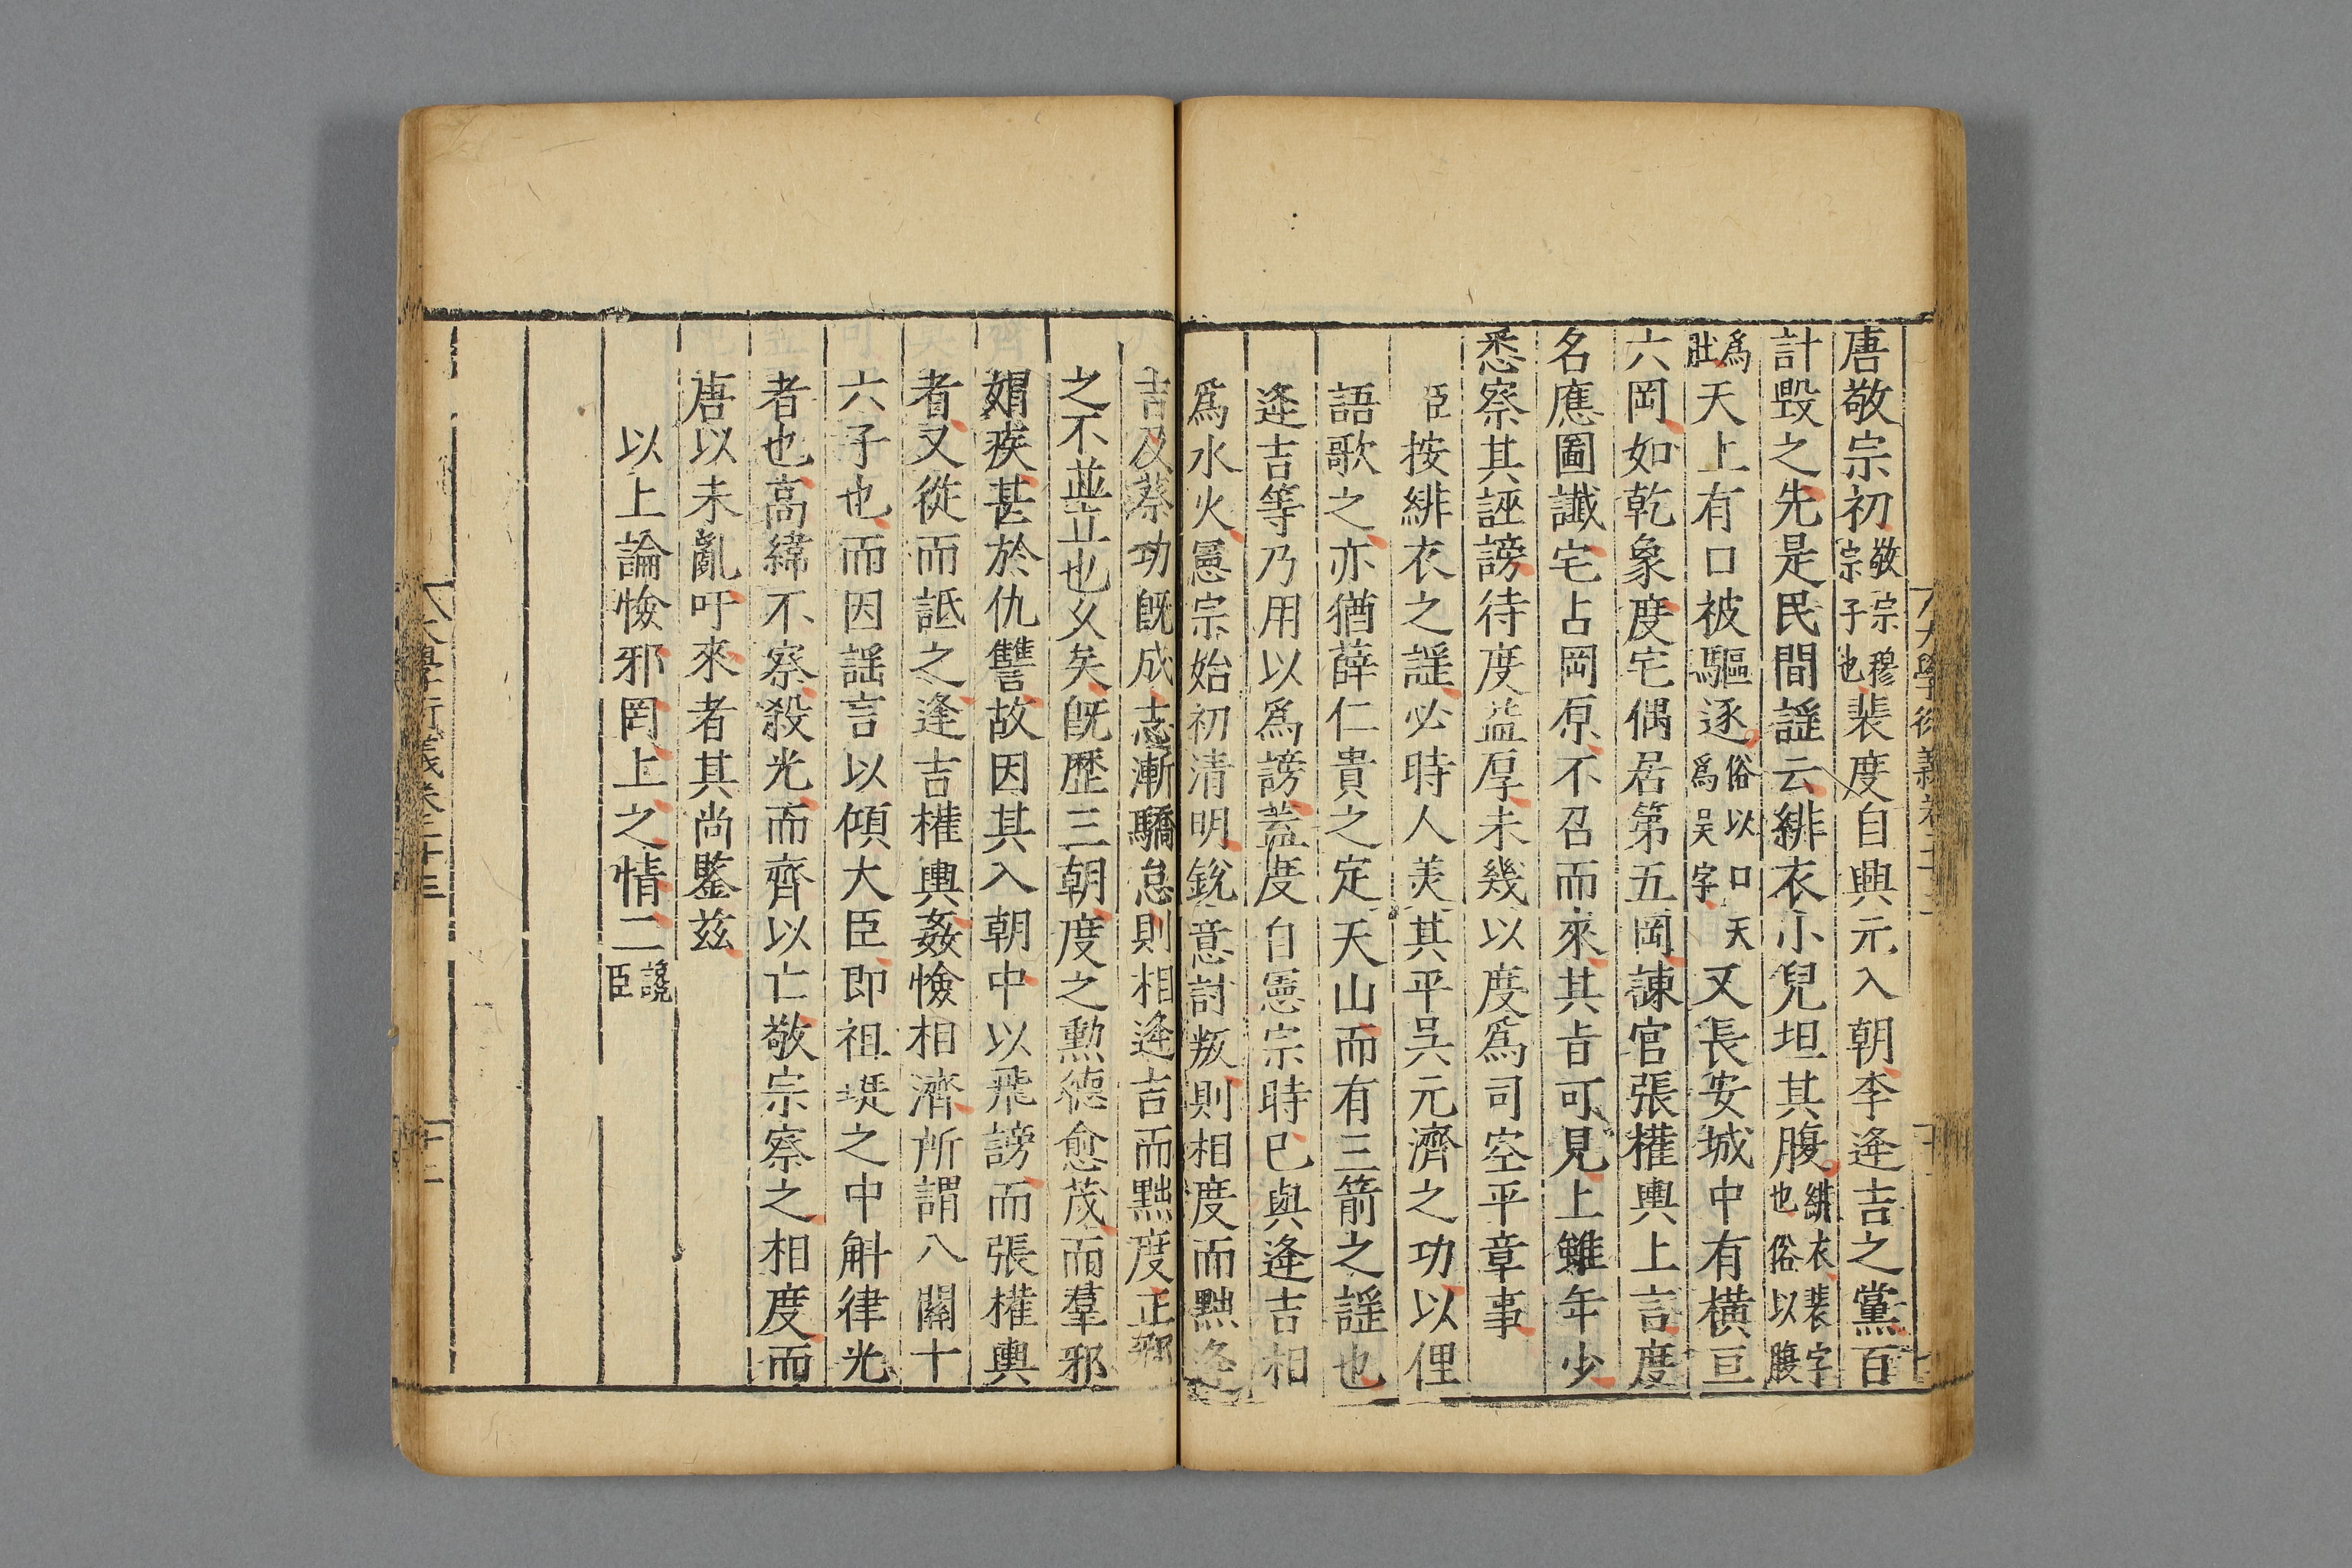 唐敬宗初敬宗穆宗子也裴度自興元入朝李逢吉之黨百
計毀之先是民間謡云緋衣小兒坦其腹緋衣裴字也俗以腹
爲肚天上有口被驅逐俗以口天爲吴字又長安城中有橫亘
六岡如乾象度宅偶居第五岡諫官張權輿上言度
名應圖讖宅占岡原不召而來其旨可見上雖年少
悉察其誣謗待度益厚未幾以度爲司空平章事
臣按緋衣之謡必時人美其平呉元濟之功以俚
語歌之亦猶薛仁貴之定天山而有三箭之謡也
逢吉等乃用以爲謗蓋度自憲宗時已與逢吉相
爲水火憲宗始初清明銳意討叛則相度而黜逢
吉及蔡功旣成志漸驕怠則相逢吉而黜度正邪
之不並立也乆矣旣歴三朝度之勲德愈茂而羣邪
媢疾甚於仇讐故因其入朝中以飛謗而張權輿
者又從而詆之逢吉權輿姦憸相濟所謂八關十
六子也而因謡言以傾大臣即祖珽之中斛律光
者也高緯不察殺光而齊以亡敬宗察之相度而
唐以未亂吁來者其尚鑒茲
以上論憸邪罔上之情二讒臣
大學衍義卷二十三
十二